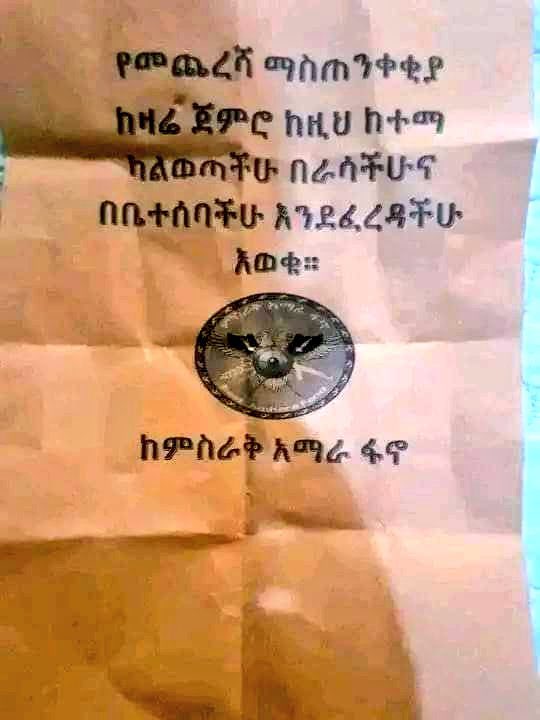 የመጨረሻ ማስጠንቀቂያ
ከዛሬ ጀምሮ ከዚህ ከተማ
ካልወጣችሁ በራሳችሁና
በቤተሰባችሁ እንደፈረዳችሁ
እወቁ።
ከምስራቅ አማራ ፋኖ